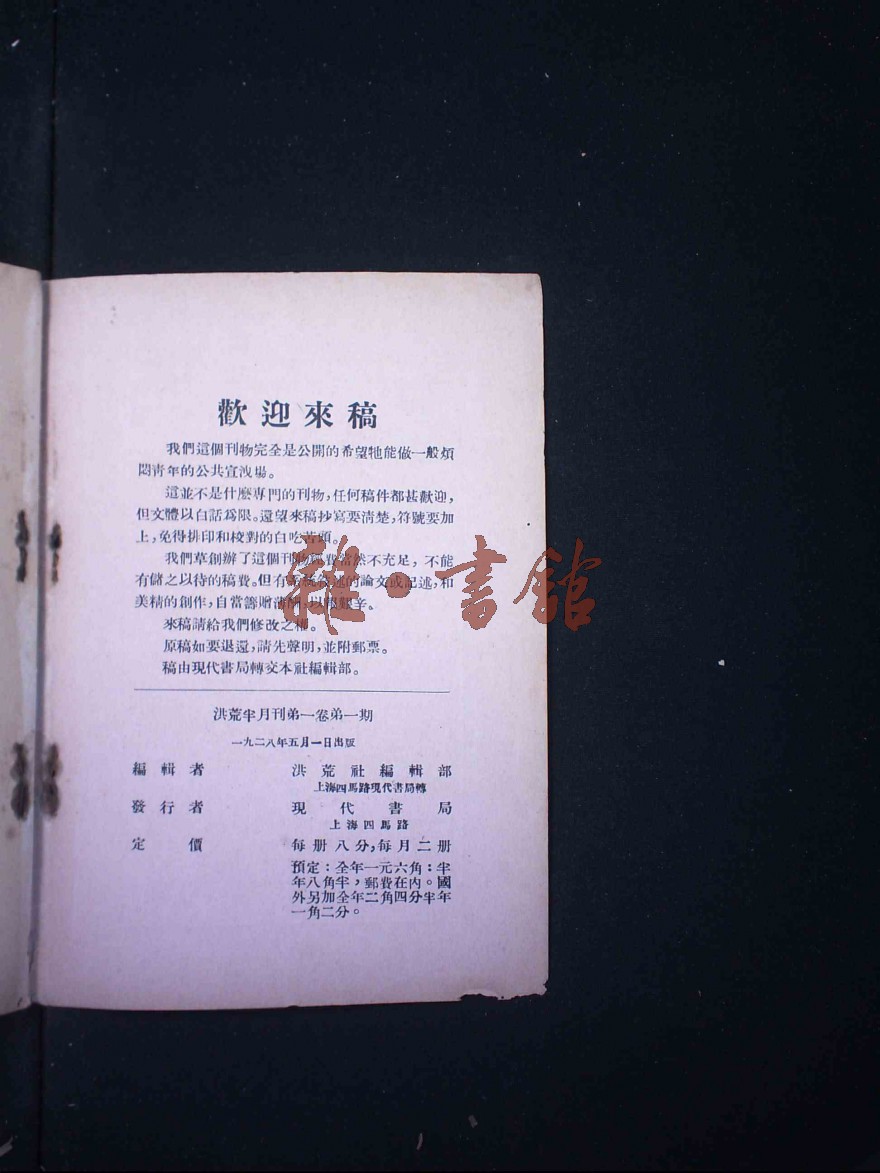 歡迎來稿
我們這個刊物完全是公開的希望牠能做一般煩
悶靑年的公共宣洩場。
這並不是什麽專門的刊物，任何稿件都甚歡迎，
但文體以白話爲限。還望來稿抄寫要淸楚，符號要加
上，免得排印和校對的白吃苦頭。
我們草創辦了這個刊物經費當然不充足，不能
有儲之以待的稿費。但有系統敍述的論文或記述，和
美精的創作，自當籌贈薄酬，以報艱辛。
來稿請給我們修改之權。
原稿如要退還，請先聲明，並附郵票。
稿由現代書局轉交本社編輯部。
洪荒半月刊第一卷第一期
一九二八年五月一日出版
編輯者 洪荒社編輯部
上海四馬路現代書局轉
發行者 現代書局
上海四馬路
定價 每册八分，每月二册
預定：全年一元六角：半
年八角半，郵費在內。國
外另加全年二角四分半年
一角二分。
雜·書館